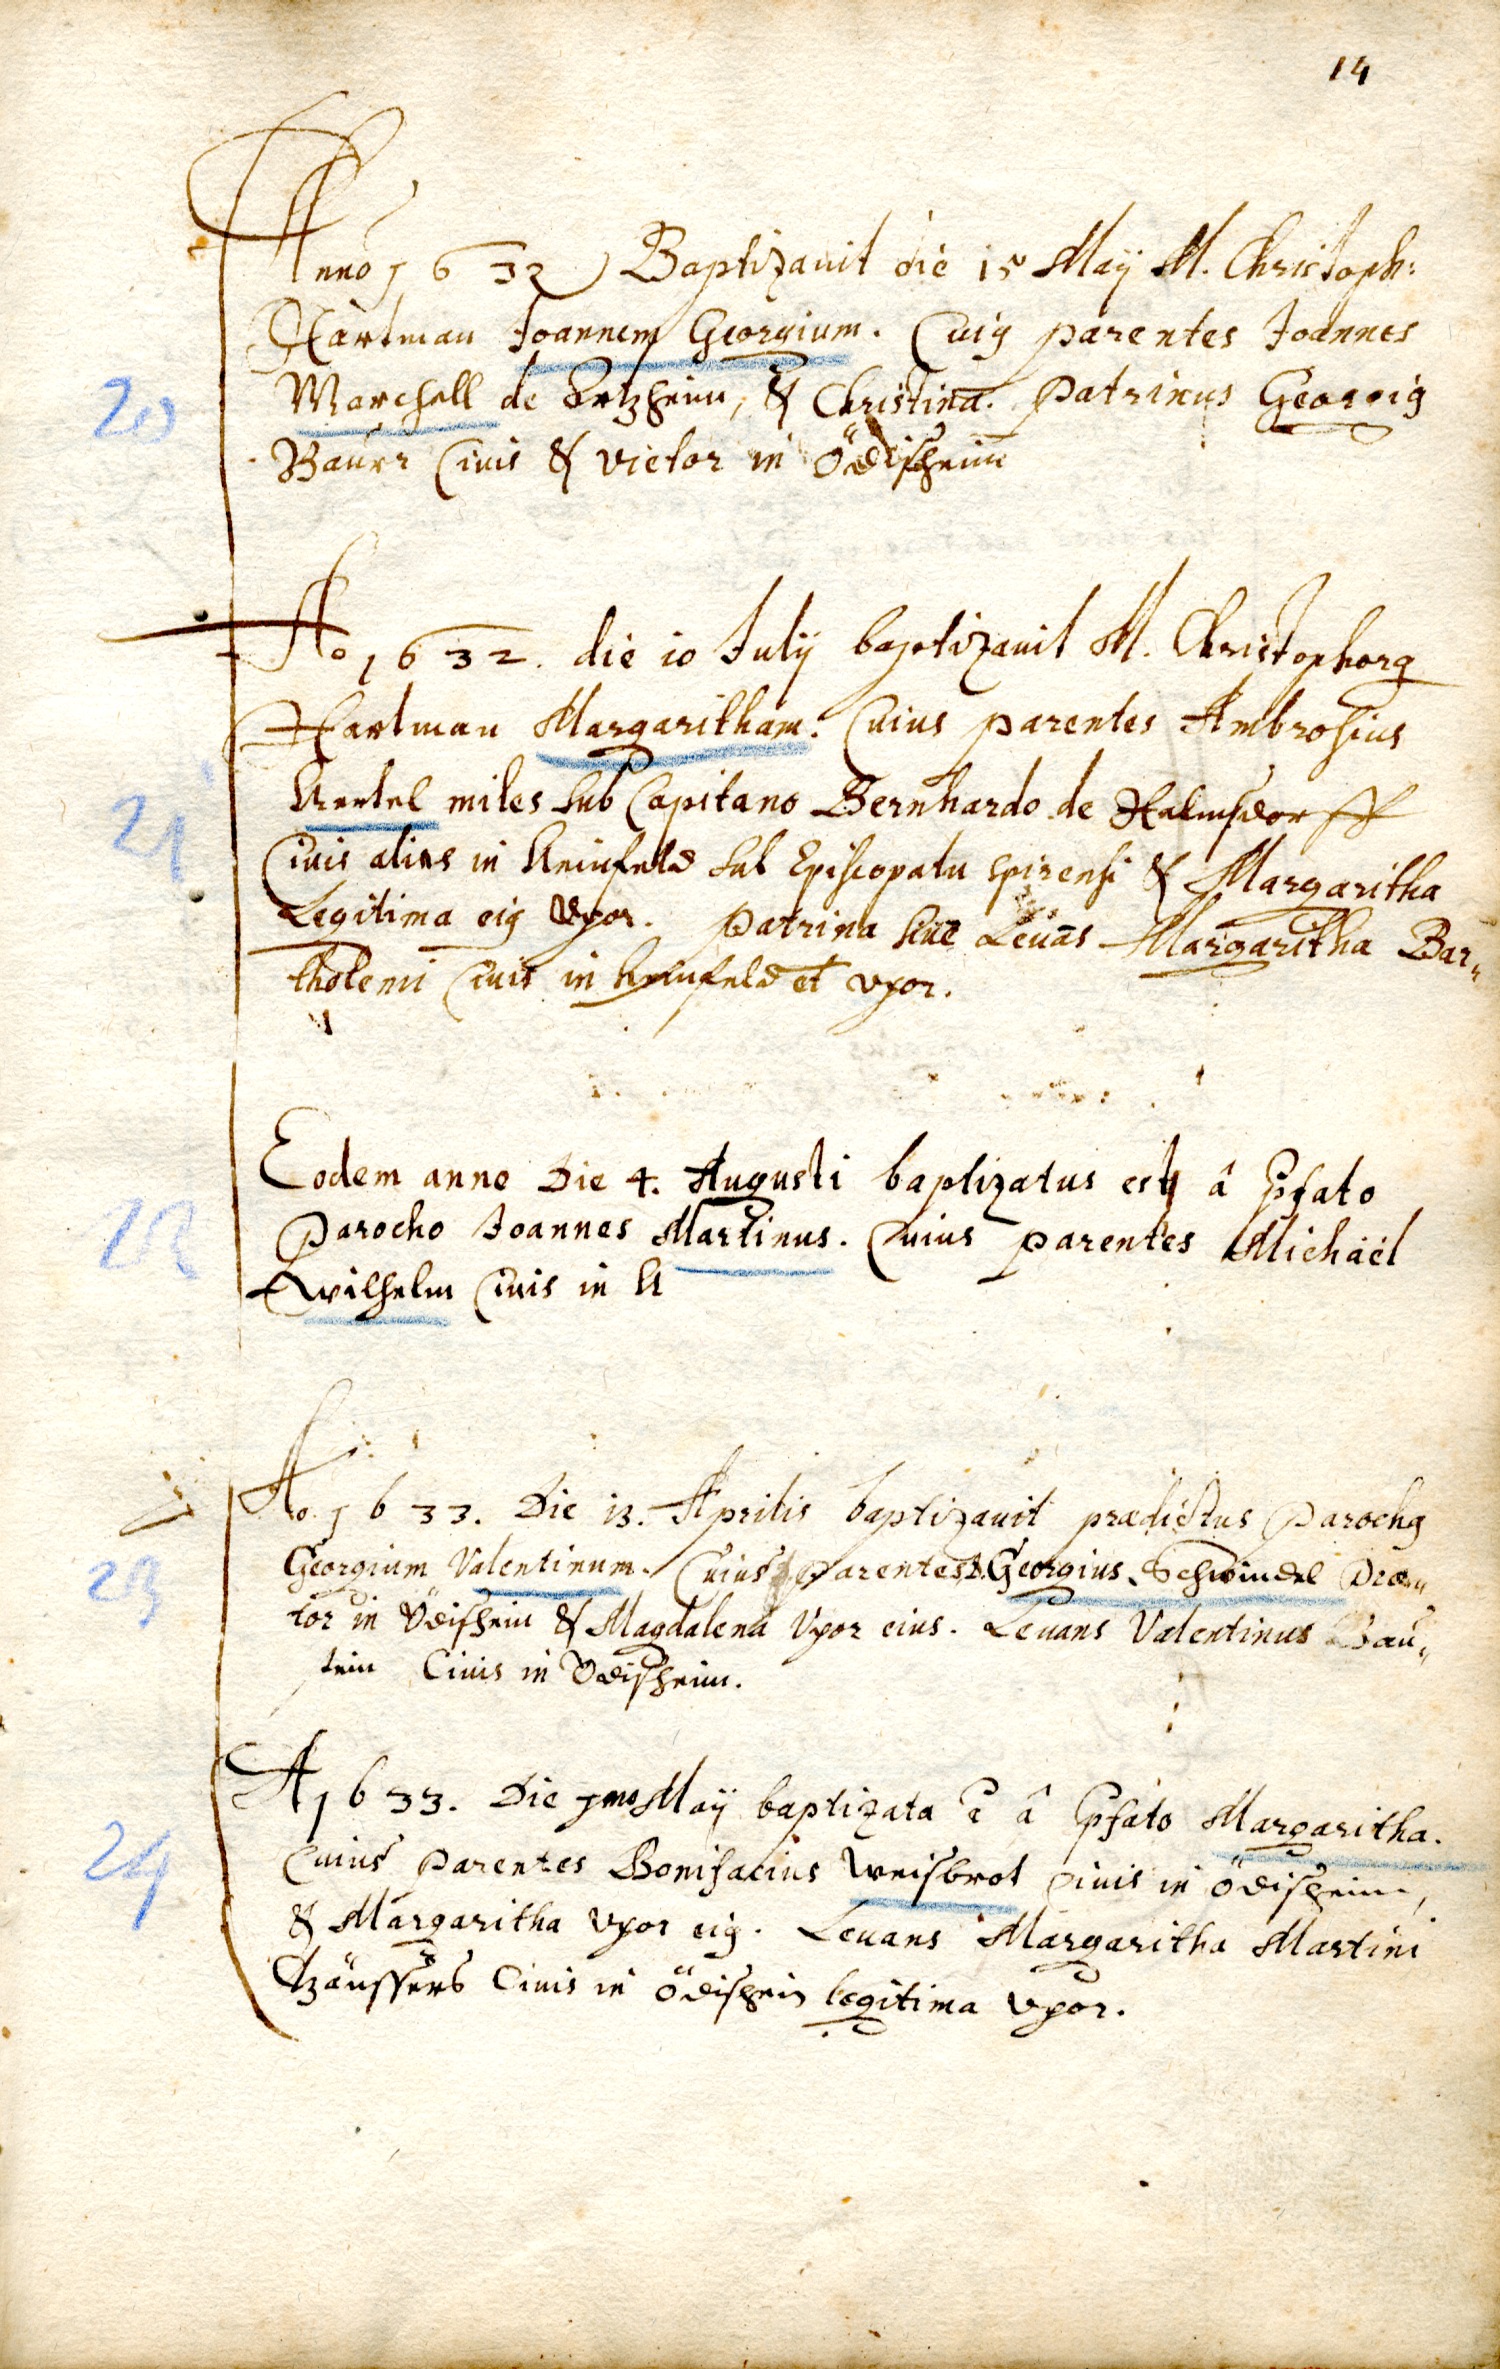 14
Anno 1632 Baptizauit die 15 Maÿ M. Christoph:
Hartman Joannem Georgium. Cuiꝰ parentes Joannes
20
Marchell de Ertzheim, & Christina. Patrinus Georgiꝰ
Baurr Ciuis & vietor in Ödißheim
Ao 1632. die 10 Julÿ baptizauit M. Christophorꝰ
Hartman Margaritham. Cuius parentes Ambrosius
21
miles sub Capitano Bernhardo de Halmsdorff
Ciuis alias in sub Episcopatu spirensi & Margaritha
Legitima eiꝰ Vxor. Patrina siue Leuās Margaritha Bar„
tholemi Ciuis in et vxor.
Eodem anno Die 4. Augusti baptizatus est â Pfato
22
Parocho Joannes Martinus. Cuius parentes Michäel
Wilhelm Ciuis in K
Ao. 1633. Die 13. Aprilis baptizauit prædictus Parochꝰ
23
Georgium Valentinum. Cuius parentes Georgius Schwindel Præ„
tor in Ödißheim & Magdalena Vxor eius. Leuans Valentinus Bau„
stein Ciuis in Ödißheim.
A 1633. Die 1mo Maÿ baptizata ē â Pfato Margaritha.
24
Cuius Parentes Bonifacius Weisbrot Ciuis in Ödißheim,
& Margaritha vxor eiꝰ. Leuans Margaritha Martini
Häussers Ciuis in Ödißheim legitima vxor.